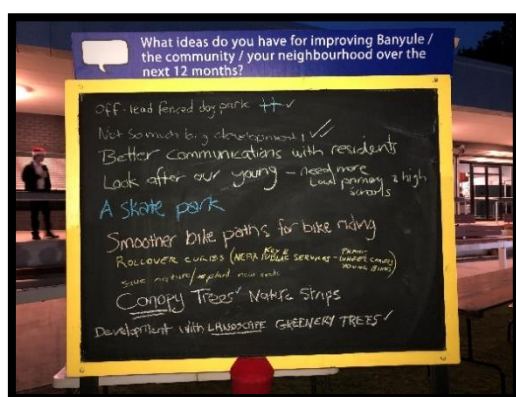 What ideas do you have for improving Banyule /
the community / your neighbourhood over the
next 12 months?
Off-lead fenced dog park
Not so much big developments
Better Communications with residents
Look after our young - need more
Local primary & high
schools
A skate park
Smoother bike paths for bike riding
ROLLOVER CURBS (NEAR HOME SERVICES -
save nature/
Canopy Trees Nature Strips
Development with LANDSCAPE GREENERY TREES